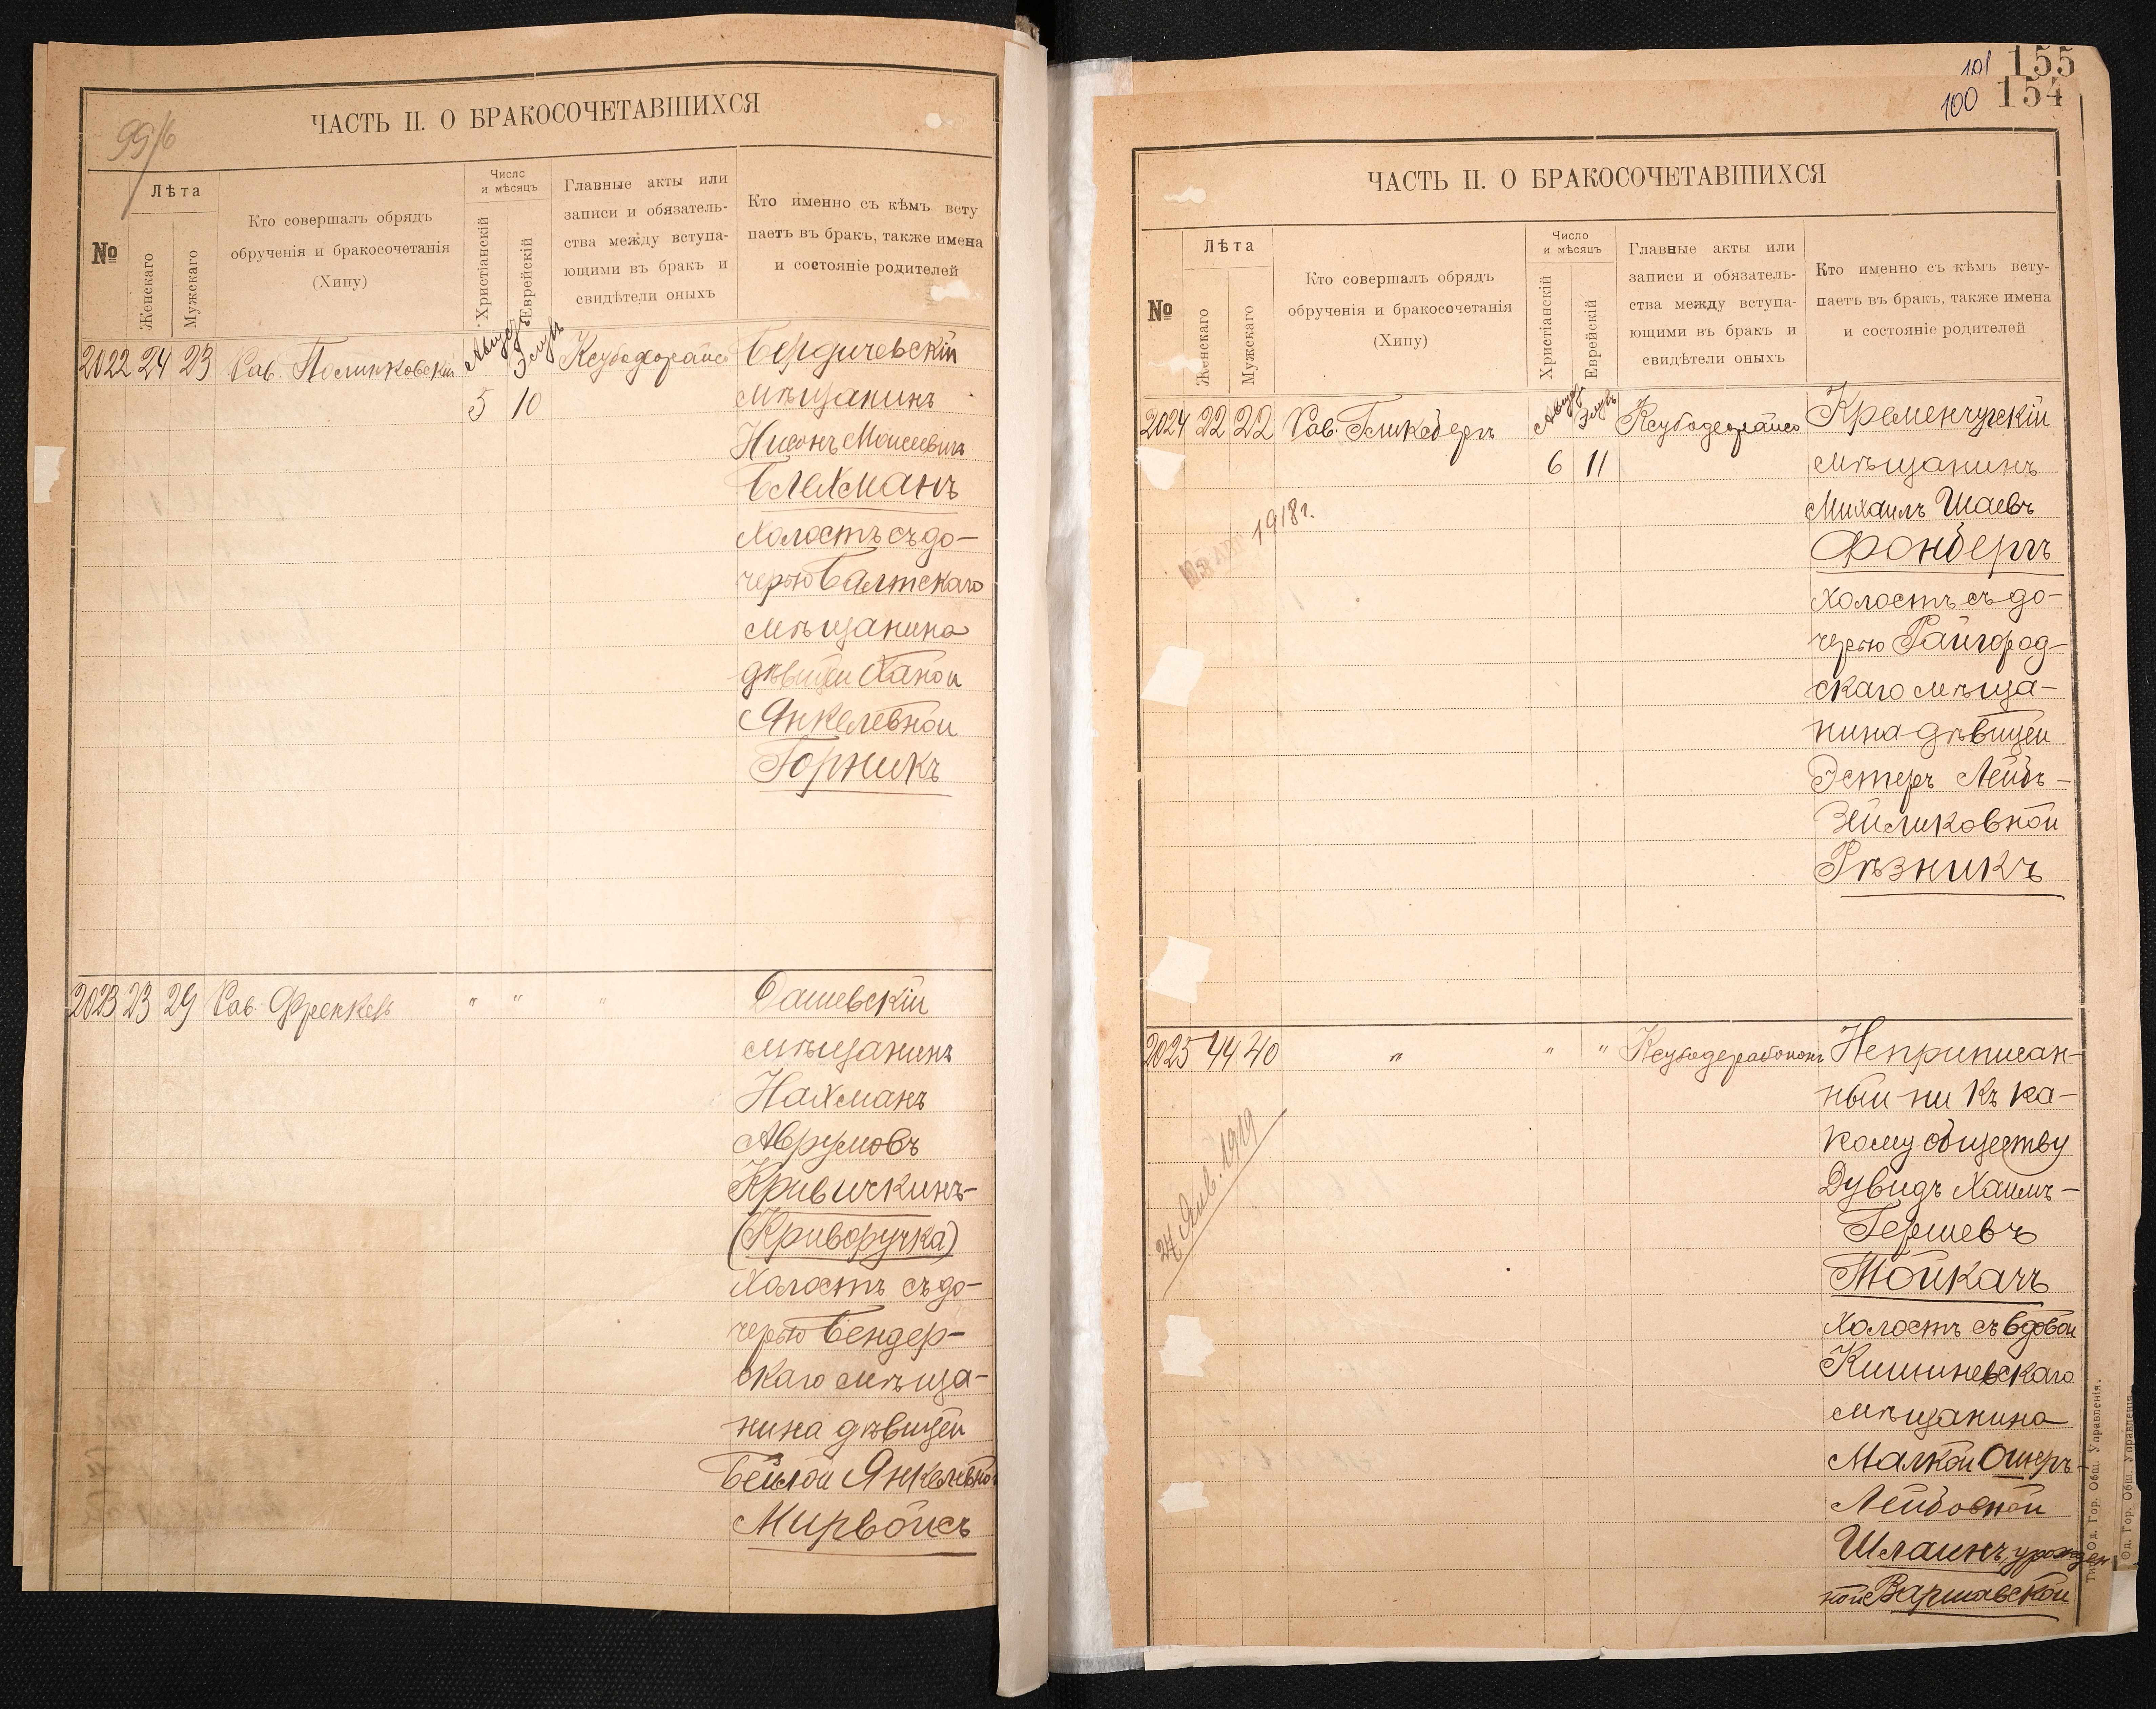 99/6
ЧАСТЬ II. О БРАКОСОЧЕТАВШИХСЯ
№
Лѣта
Женскаго
Мужскаго
Кто совершалъ обрядъ
обрученія и бракосочетанія
(Хипу)
Число
и мѣсяцъ
Христіанскій
Еврейскій
Главные акты или
записи и обязатель-
ства между вступа-
ющими въ бракъ и
свидѣтели оныхъ
Кто именно съ кѣмъ всту
паетъ въ бракъ, также имена
и состояніе родителей
2022 24 23 Рав. Полинковскій Августъ Элулъ Ксубодеорайсо Бердичевскій
5 10 мѣщанинъ
Нисонъ Моисеевичъ
Блехманъ
холостъ съ до-
черью Балтскаго
мѣщанина
дѣвицей Ханой
Янкелевной
Горникъ
2023 23 29 Рав. Френкель " " " Дашевскій
мѣщанинъ
Нахманъ
Аврумовъ
Кривичкинъ-
(Криворучка)
холостъ съ до-
черью Бендер-
скаго мѣща-
нина дѣвицей
Бейлой Янкелевной
Мирвойсъ
101 155
100 154
ЧАСТЬ II. О БРАКОСОЧЕТАВШИХСЯ
№
Лѣта
Женскаго
Мужскаго
Кто совершалъ обрядъ
обрученія и бракосочетанія
(Хипу)
Число
и мѣсяцъ
Христіанскій
Еврейскій
Главные акты или
записи и обязатель-
ства между вступа-
ющими въ бракъ и
свидѣтели оныхъ
Кто именно съ кѣмъ всту-
паетъ въ бракъ, также имена
и состояніе родителей
2024 22 22 Рав. Гликсбергъ Августъ Элулъ Ксубодеорайсо Кременчугскій
6 11 мѣщанинъ
Михаилъ Шаевъ
1918 г.
Фонбергъ
холостъ съ до-
черью Райгород-
скаго мѣща-
нина дѣвицей
Эстеръ Лейбъ-
Зейликовной
Рѣзникъ
2025 44 40 " " " Ксубодерабонон Неприписан-
ный ни къ ка-
кому обществу
24 Янв. 1919
Дувидъ Хаимъ-
Гершевъ
Тойкачъ
холостъ съ вдовой
Кишиневскаго
мѣщанина
Малкой Ошеръ-
Лейбовной
Шлаинъ, урожден
ной Варшавской
Тип. Од. Гор. Общ. Управленія.
Од. Гор. Общ. Управленія.